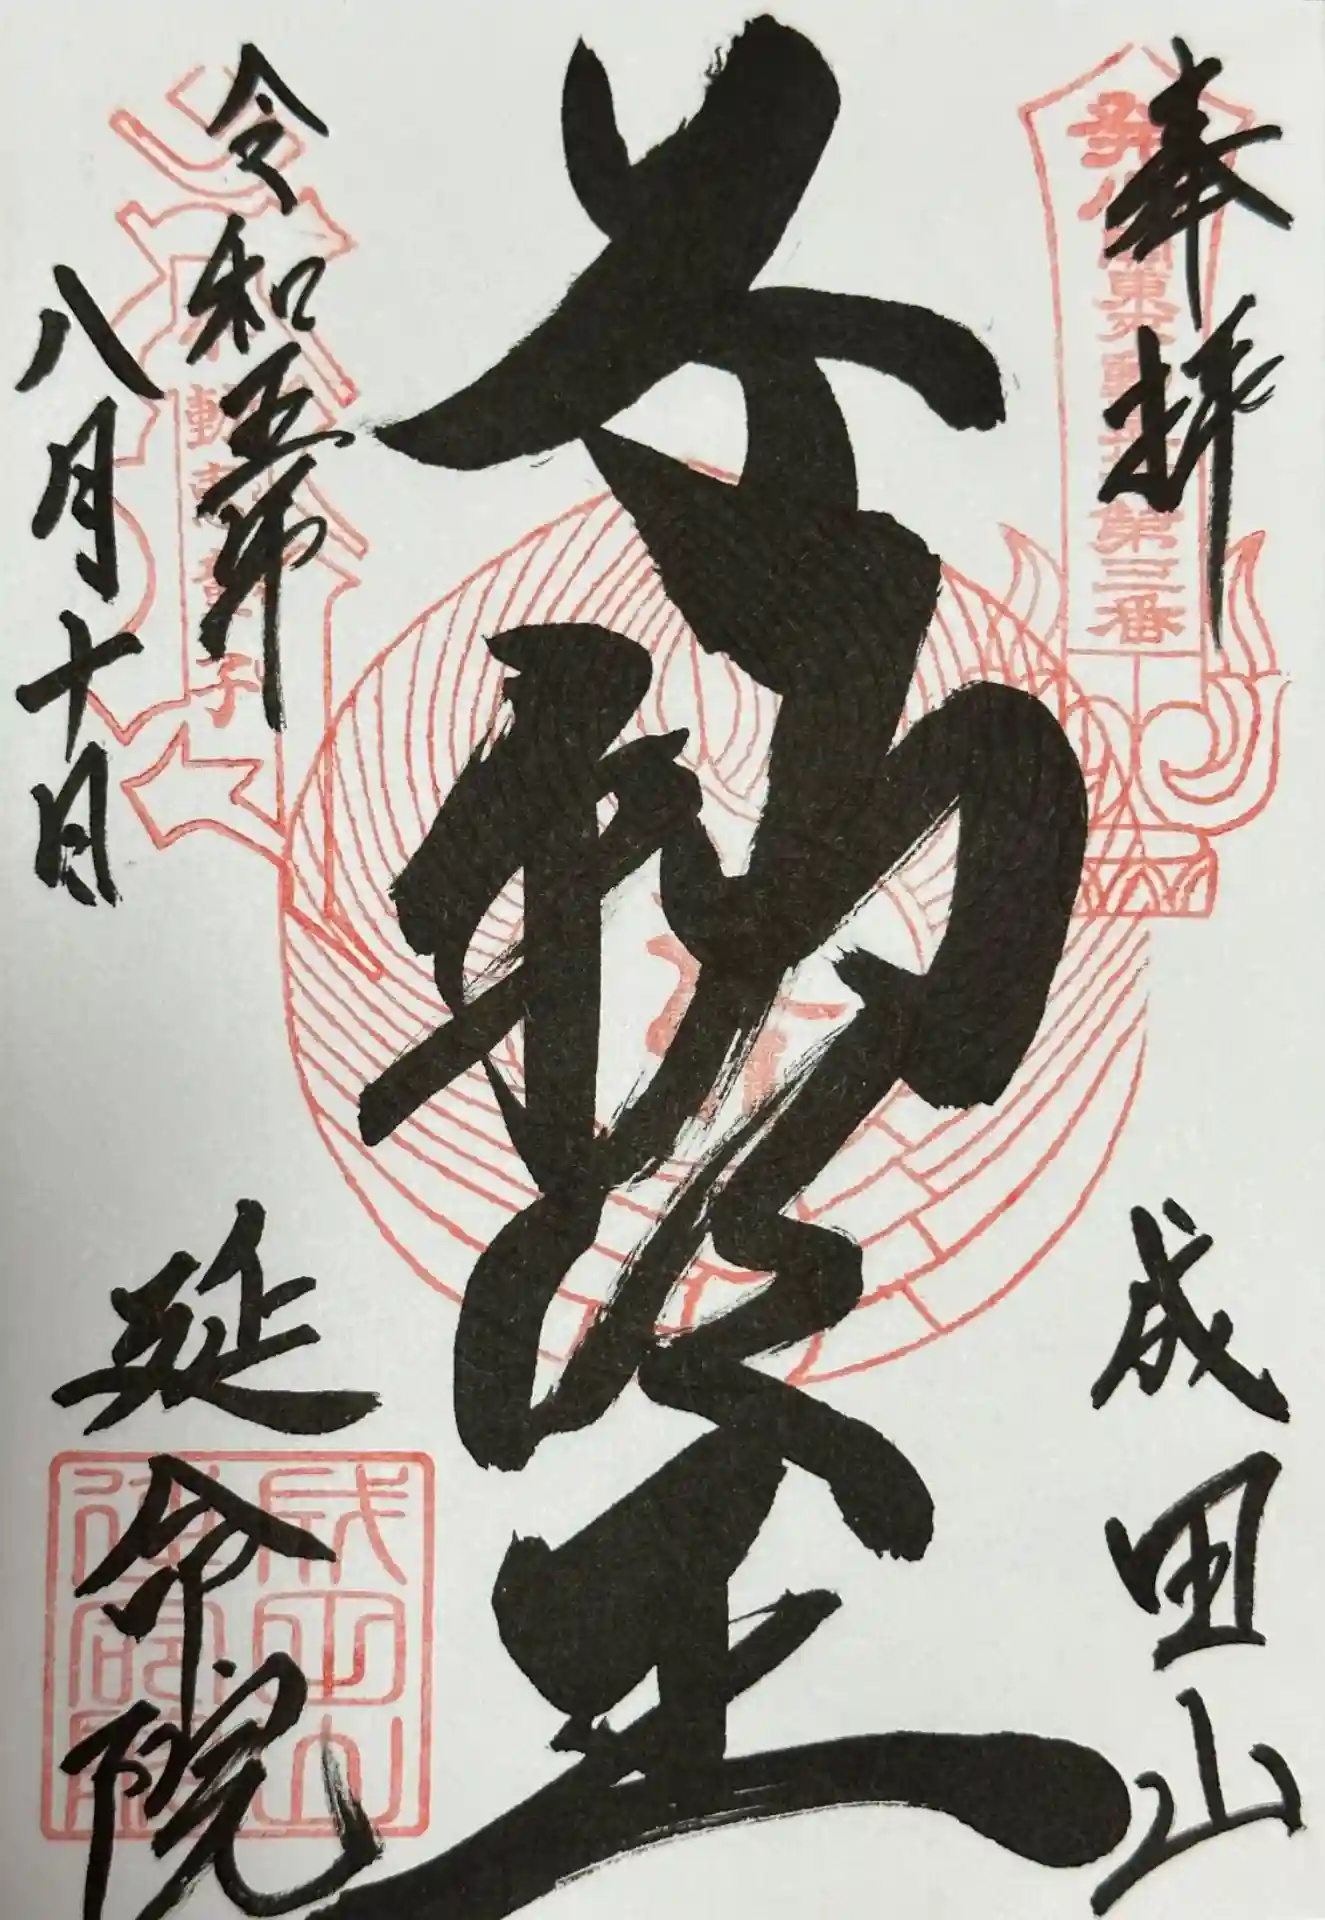 奉拝
成田山
関東三十六不動霊場第三番
不動明王
令和五年
八月十日
延命院
成田山
延命院